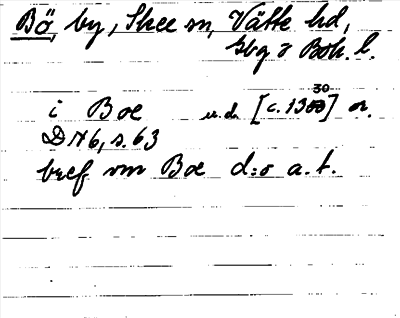 Bö, by, Skee sn, Vätte hd,
Gbg o Boh. l.
i Boe u.d. [c. 1330] or.
DN 6, s. 63
bref vm Boe d:o a.t.